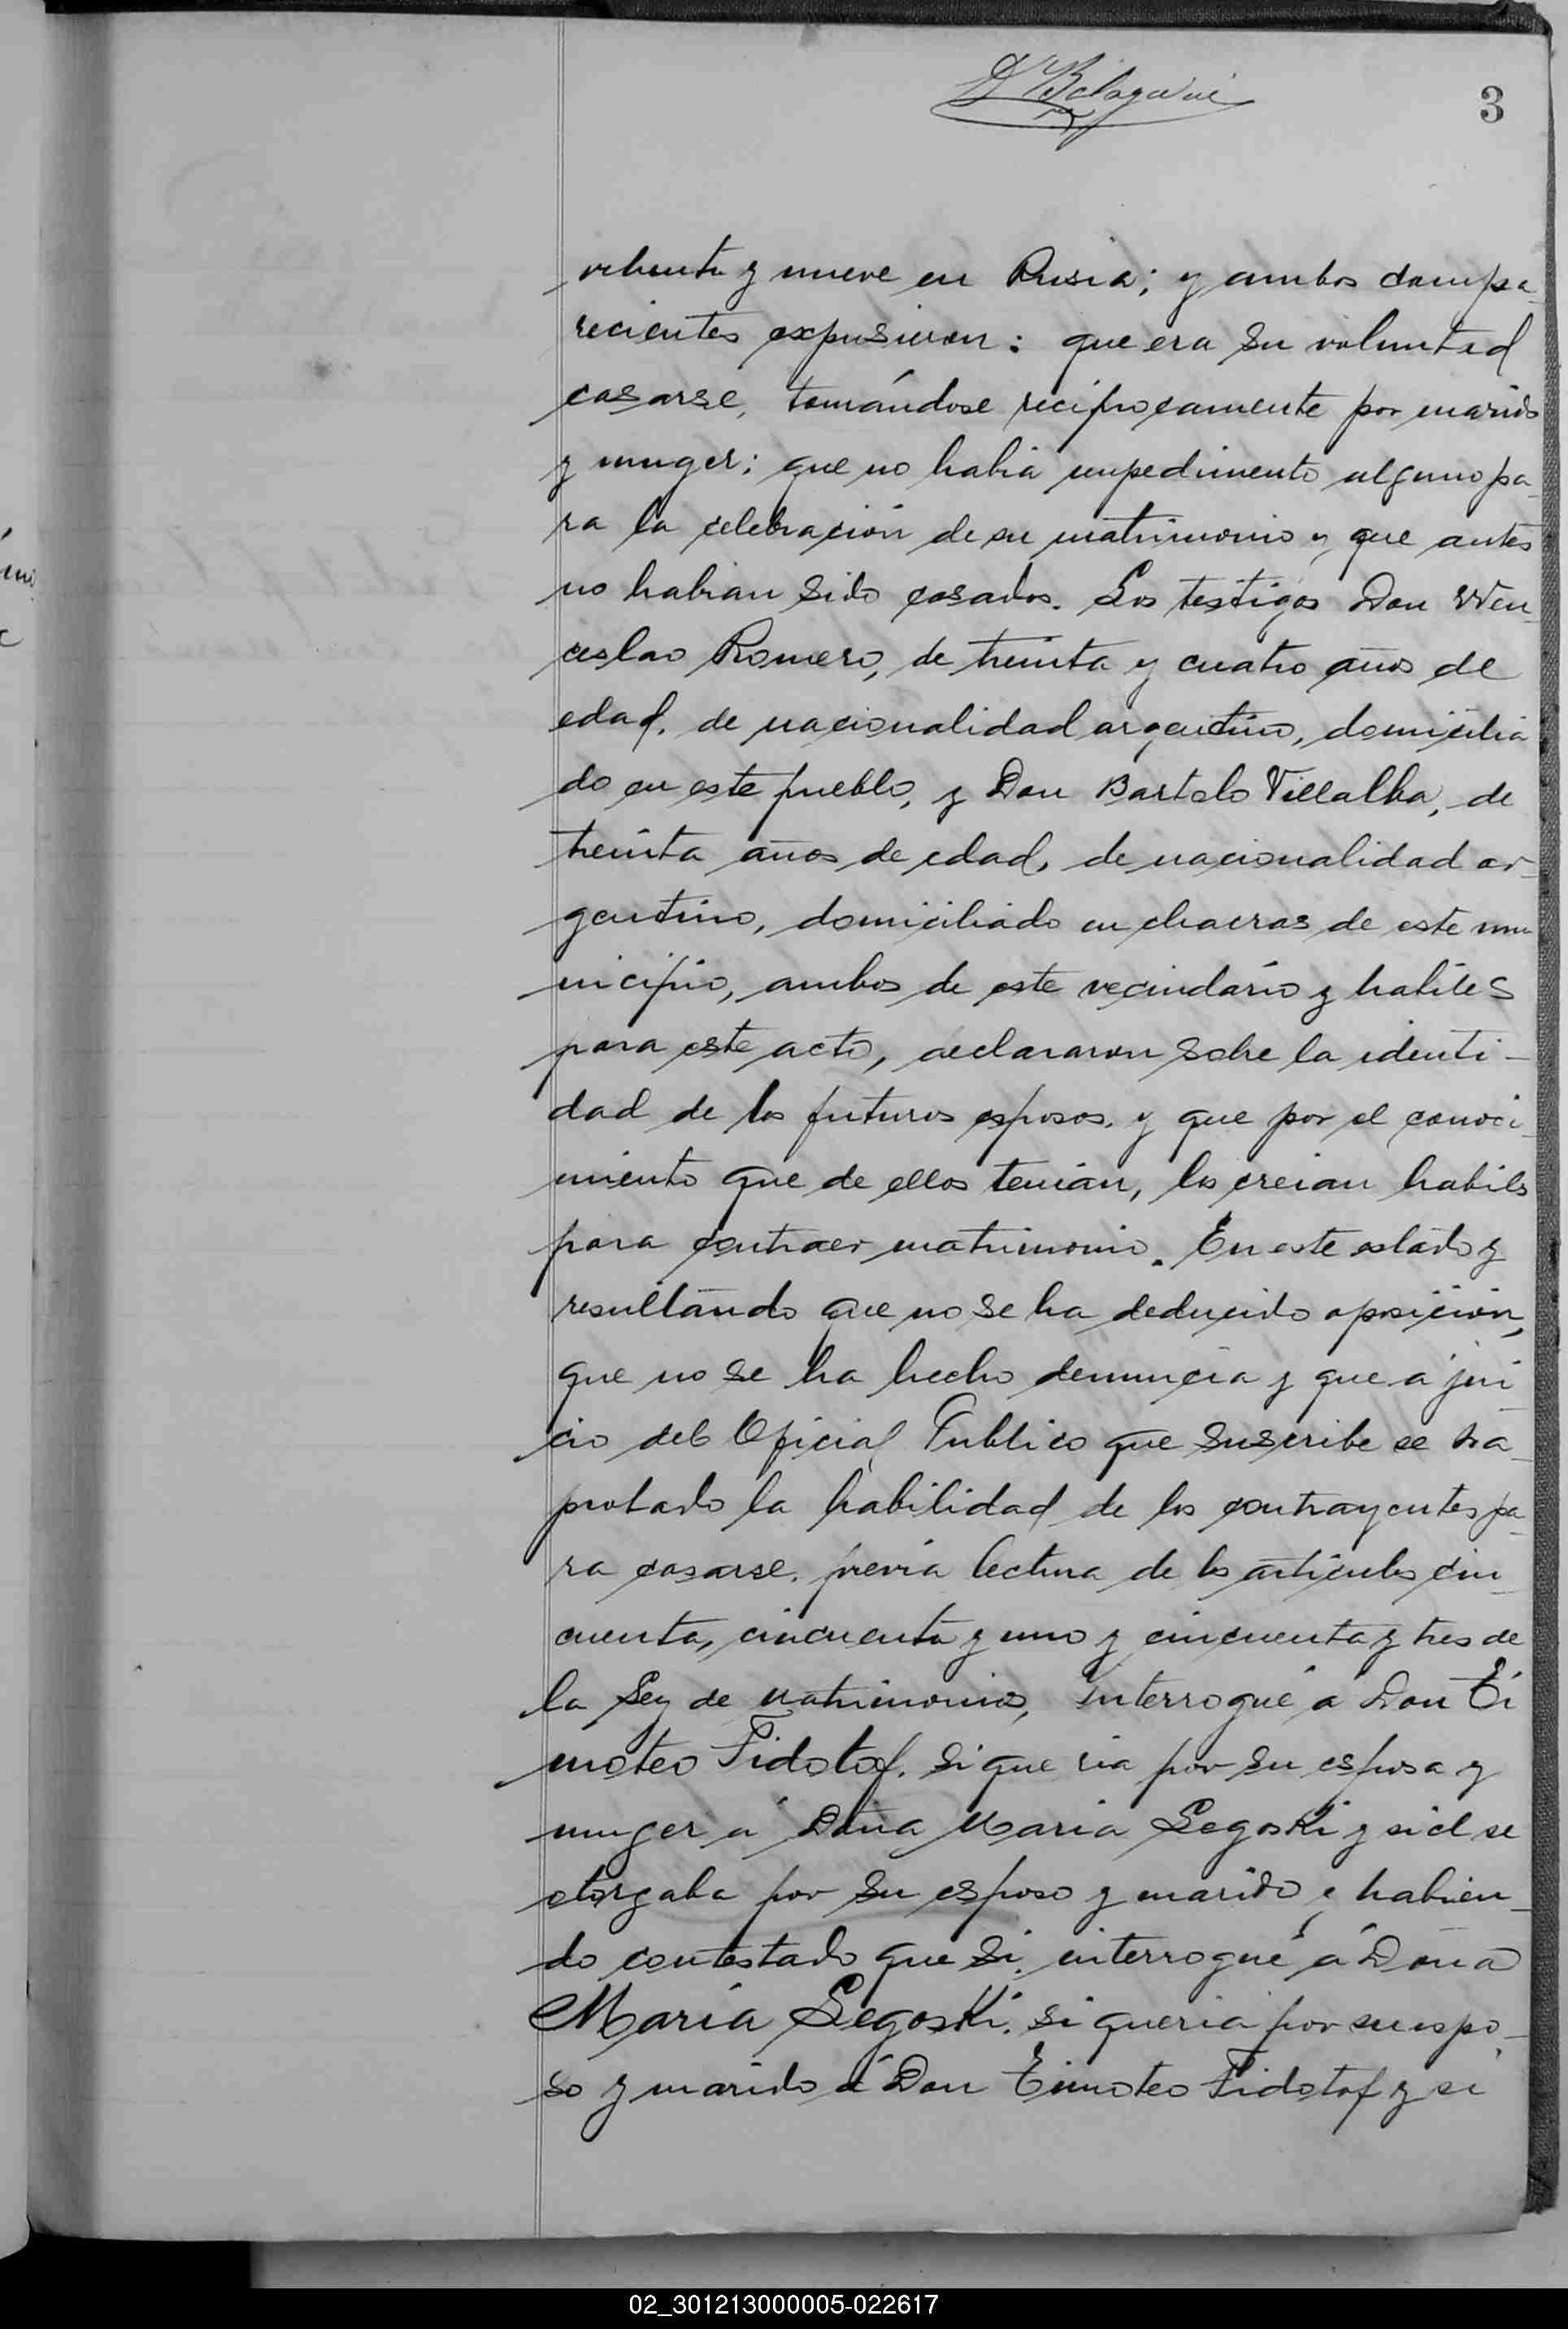 3
ochenta y nueve en Rusia; y ambos compa-
recientes expusieron: que era su voluntad
casarse, tomándose reciprocamente por marido
y muger; que no habia impedimento alguno pa-
ra la celebración de su matrimonio y que antes
no habian sido casados. Los testigos Don Wen-
ceslao Romero, de treinta y cuatro años de
edad, de nacionalidad argentino, domicilia
do en este pueblo, y Don Bartolo Villalba, de
treinta años de edad, de nacionalidad ar-
gentino, domiciliado en chacras de este mu-
nicipio, ambos de este vecindario y habiles
para este acto, declararon sobre la identi-
dad de los futuros esposos, y que por el conoci-
miento que de ellos tenian, los creian habiles
para contraer matrimonio. En este estado y
resultando que no se ha deducido oposición,
que no se ha hecho denuncia y que á jui
cio del Oficial Publico que suscribe se ha
probado la habilidad de los contrayentes pa-
ra casarse, previa lectura de los articulos cin-
cuenta, cincuenta y uno y cincuenta y tres de
la Ley de Matrimonio, interrogué á Don Ti
moteo Fidotof, si que ria por su esposa y
muger á Doña Maria Segoski y si el se
otorgaba por su esposo y marido é habien-
do contestado que si, interrogué á Doña
Maria Segoski, si queria por su espo-
so y marido á Don Timoteo Fidotof y si
02_301213000005-022617